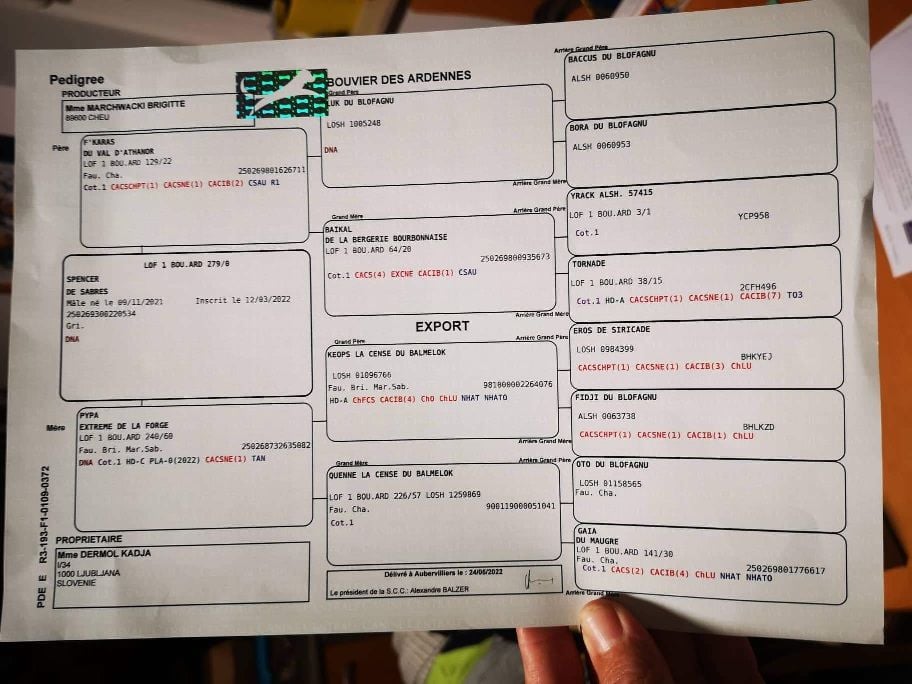 Pedigree
PRODUCTEUR
Mme MARCHWACKI BRIGITTE
89600 CHEU
BOUVIER DES ARDENNES
Père
F'KARAS
DU VAL D'ATHANOR
LOF 1 BOU.ARD 129/22
Fau. Cha. 250269801626711
Cot.1 CACSCHPT(1) CACSNE(1) CACIB(2) CSAU R1
LOF 1 BOU.ARD 279/0
SPENCER
DE SABRES
Mâle né le 09/11/2021 Inscrit le 12/03/2022
250269300220534
Gri.
DNA
Mère
PYPA
EXTREME DE LA FORGE
LOF 1 BOU.ARD 240/60
Fau. Bri. Mar.Sab. 250268732635082
DNA Cot.1 HD-C PLA-0(2022) CACSNE(1) TAN
PROPRIETAIRE
Mme DERMOL KADJA
I/34
1000 LJUBLJANA
SLOVENIE
PDE E R3-193-F1-0109-0372
Grand Père
LUK DU BLOFAGNU
LOSH 1005248
DNA
Grand Mère
BAIKAL
DE LA BERGERIE BOURBONNAISE
LOF 1 BOU.ARD 64/20
250269800935673
Cot.1 CACS(4) EXCNE CACIB(1) CSAU
EXPORT
Grand Père
KEOPS LA CENSE DU BALMELOK
LOSH 01096766
Fau. Bri. Mar.Sab. 981000002264076
HD-A ChFCS CACIB(4) ChO ChLU NHAT NHATO
Grand Mère
QUENNE LA CENSE DU BALMELOK
LOF 1 BOU.ARD 226/57 LOSH 1259869
Fau. Cha. 900119000051041
Cot.1
Délivré à Aubervilliers le : 24/06/2022
Le président de la S.C.C.: Alexandre BALZER
Arrière Grand Père
BACCUS DU BLOFAGNU
ALSH 0060950
BORA DU BLOFAGNU
ALSH 0060953
Arrière Grand Mère
Arrière Grand Père
YRACK ALSH. 57415
LOF 1 BOU.ARD 3/1 YCP958
Cot.1
TORNADE
LOF 1 BOU.ARD 38/15 2CFH496
Cot.1 HD-A CACSCHPT(1) CACSNE(1) CACIB(7) TO3
Arrière Grand Mère
Arrière Grand Père
EROS DE SIRICADE
LOSH 0984399 BHKYEJ
CACSCHPT(1) CACSNE(1) CACIB(3) ChLU
FIDJI DU BLOFAGNU
ALSH 0063738 BHLKZD
CACSCHPT(1) CACSNE(1) CACIB(1) ChLU
Arrière Grand Mère
Arrière Grand Père
OTO DU BLOFAGNU
LOSH 01158565
Fau. Cha.
GAIA
DU MAUGRE
LOF 1 BOU.ARD 141/30
Fau. Cha. 250269801776617
Cot.1 CACS(2) CACIB(4) ChLU NHAT NHATO
Arrière Grand Mère